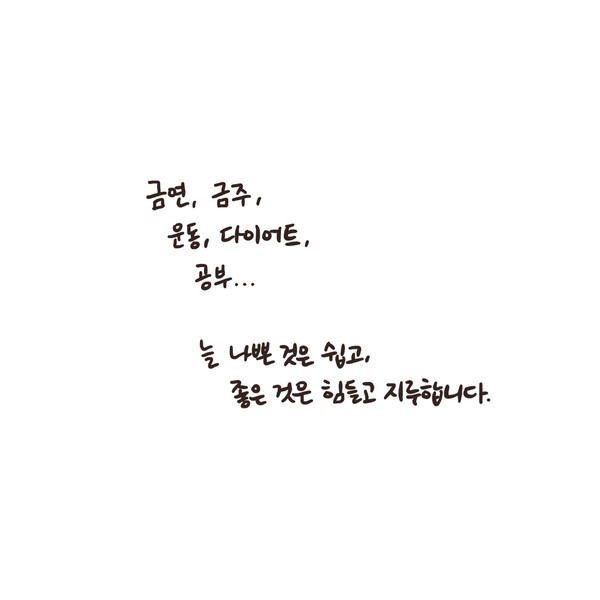 금연, 금주,
운동, 다이어트,
공부...
늘 나쁜 것은 쉽고,
좋은 것은 힘들고 지루합니다.